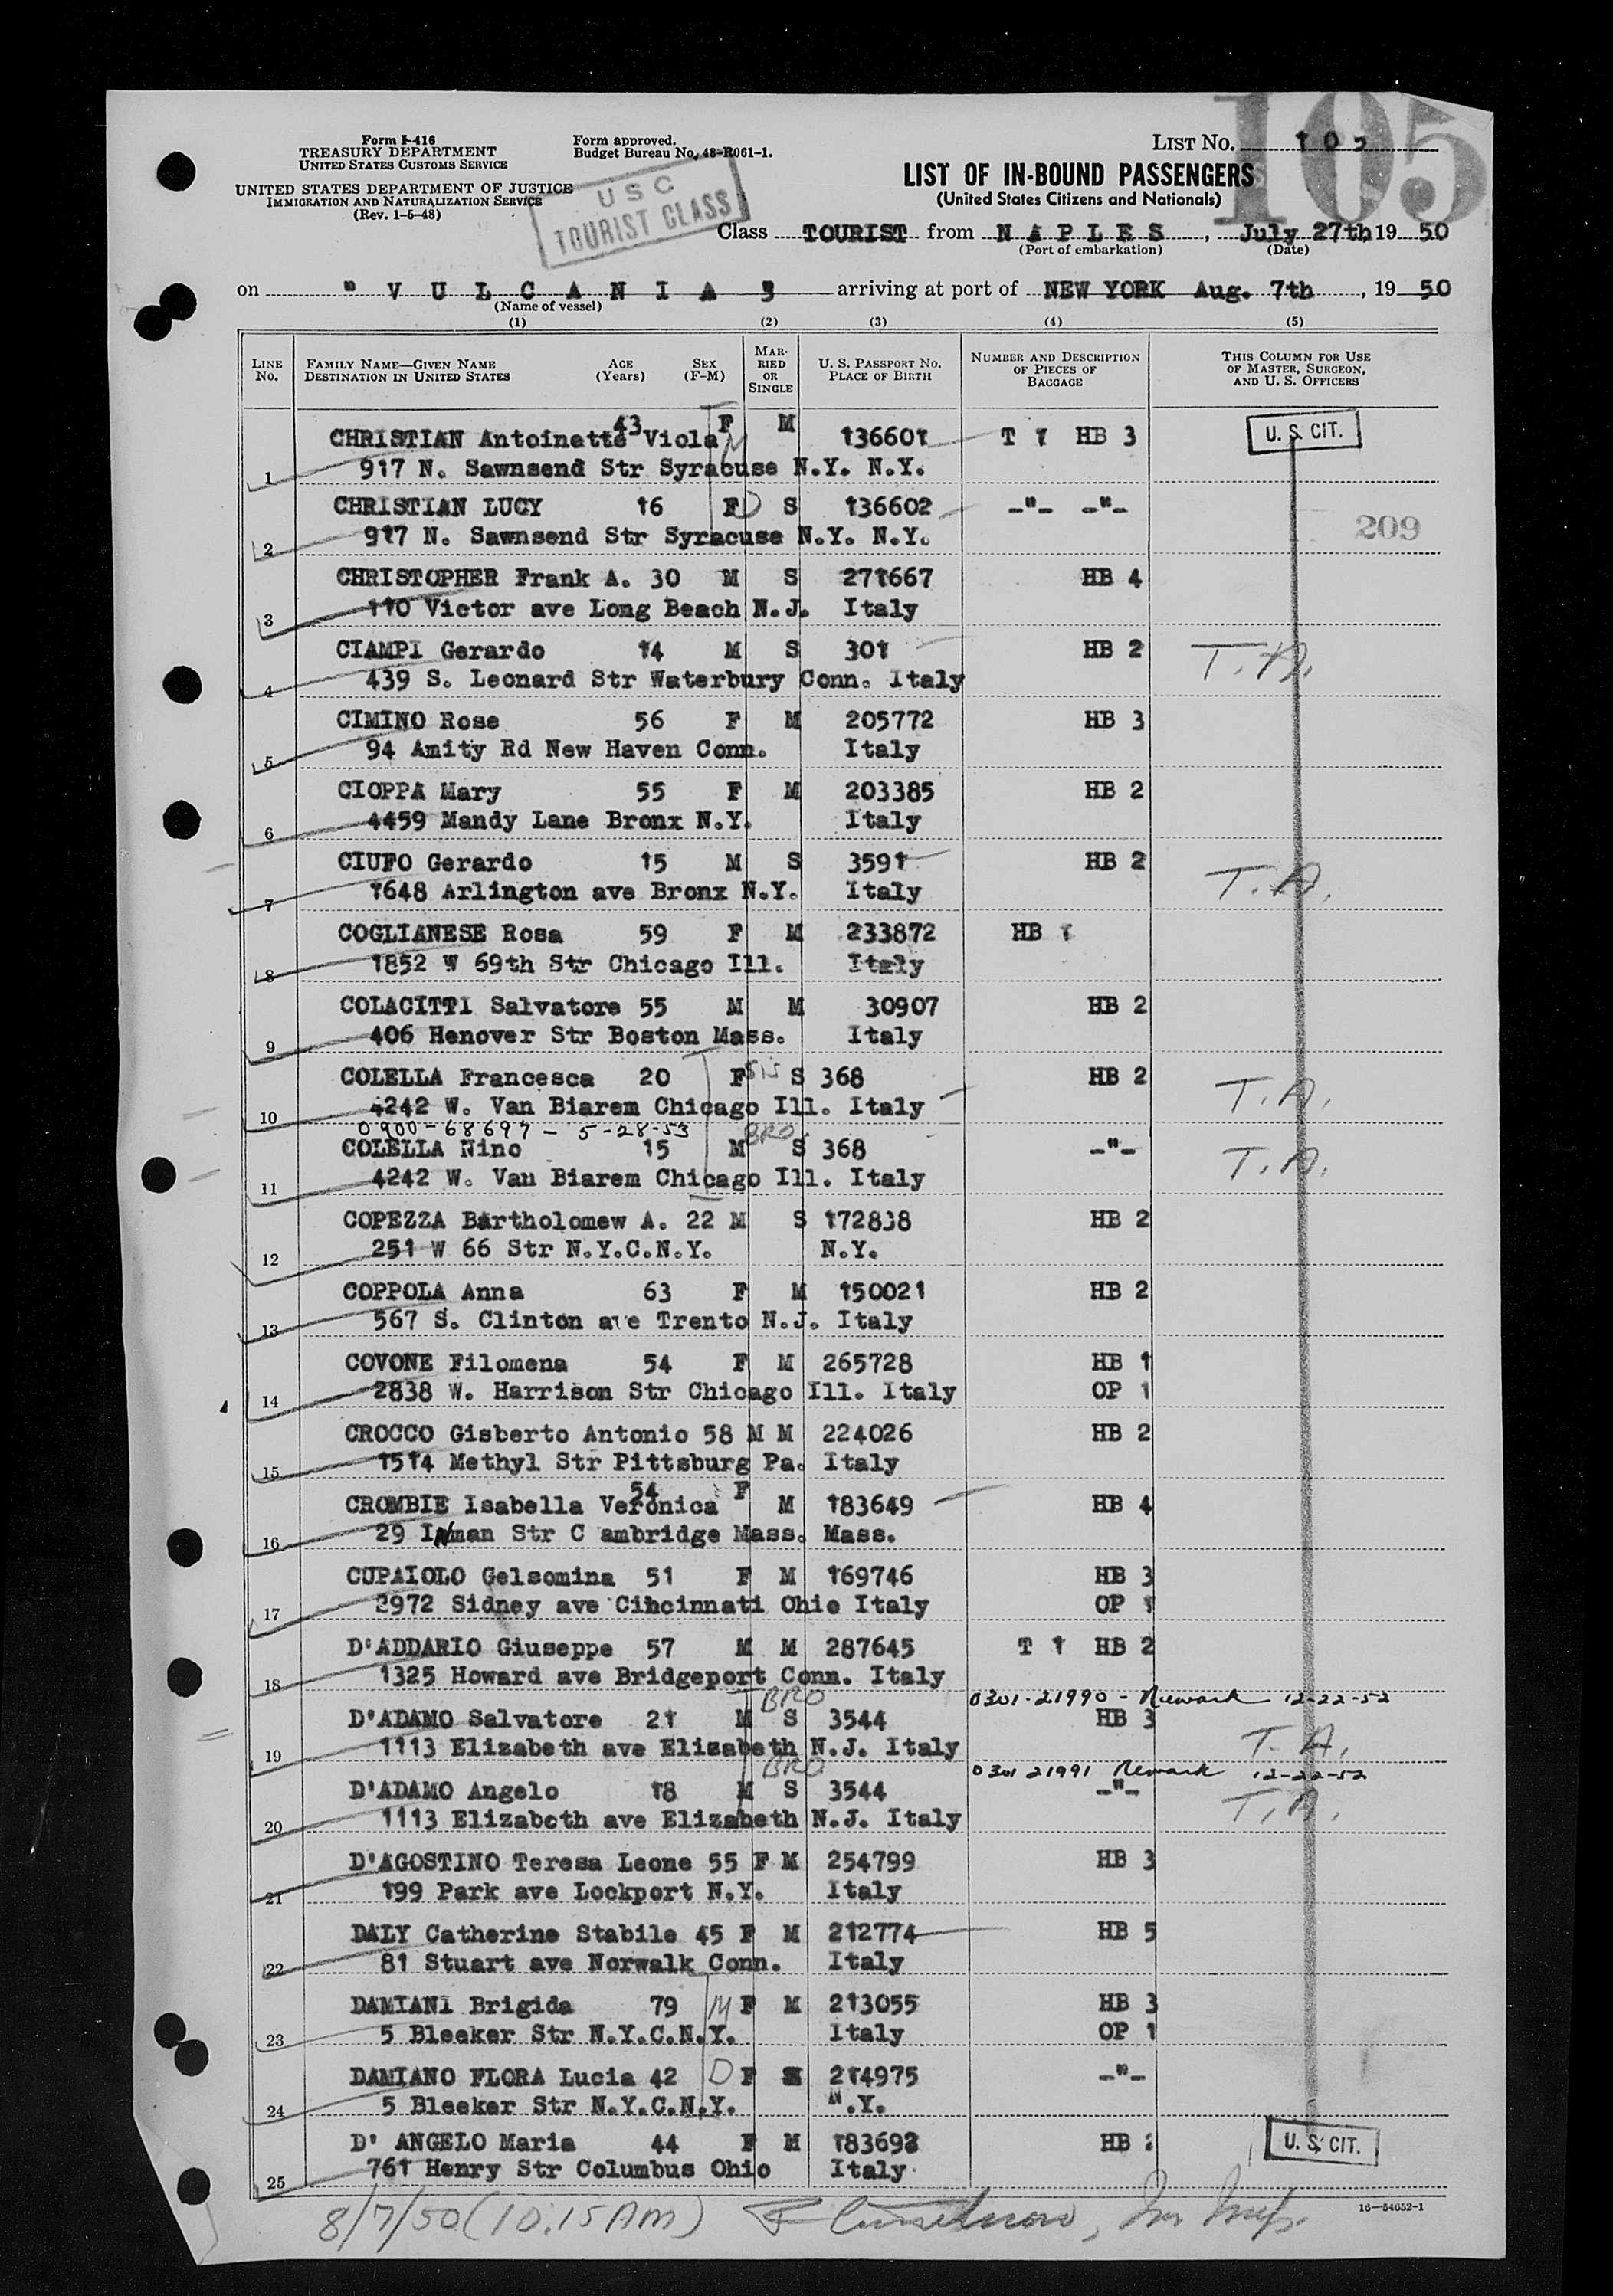 105
Form I-416
TREASURY DEPARTMENT
UNITED STATES CUSTOMS SERVICE
UNITED STATES DEPARTMENT OF JUSTICE
IMMIGRATION AND NATURALIZATION SERVICE
(Rev. 1-5-48)
Form approved.
Budget Bureau No. 48-R061-1.
U S C
TOURIST CLASS
LIST No. 105
LIST OF IN-BOUND PASSENGERS
(United States Citizens and Nationals)
Class TOURIST from NAPLES, July 27th 19 50
(Port of embarkation) (Date)
on "VULCANIA" arriving at port of NEW YORK Aug. 7th, 19 50
(Name of vessel)
(1) (2) (3) (4) (5)
LINE No. FAMILY NAME—GIVEN NAME DESTINATION IN UNITED STATES AGE (Years) SEX (F-M) MARRIED OR SINGLE U. S. PASSPORT No. PLACE OF BIRTH NUMBER AND DESCRIPTION OF PIECES OF BAGGAGE THIS COLUMN FOR USE OF MASTER, SURGEON, AND U. S. OFFICERS
CHRISTIAN Antoinette Viola 43 F M 136601 T 1 HB 3 U. S. CIT.
1 917 N. Sawnsend Str Syracuse N.Y. N.Y.
CHRISTIAN LUCY 16 F D S 136602 -"- -"-
2 917 N. Sawnsend Str Syracuse N.Y. N.Y. 209
CHRISTOPHER Frank A. 30 M S 271667 HB 4
3 110 Victor ave Long Beach N.J. Italy
CIAMPI Gerardo 14 M S 301 HB 2 T.A.
4 439 S. Leonard Str Waterbury Conn. Italy
CIMINO Rose 56 F M 205772 HB 3
5 94 Amity Rd New Haven Conn. Italy
CIOPPA Mary 55 F M 203385 HB 2
6 4459 Mandy Lane Bronx N.Y. Italy
CIUFO Gerardo 15 M S 3591 HB 2 T.A.
7 1648 Arlington ave Bronx N.Y. Italy
COGLIANESE Rosa 59 F M 233872 HB 1
8 1852 W 69th Str Chicago Ill. Italy
COLACITTI Salvatore 55 M M 30907 HB 2
9 406 Henover Str Boston Mass. Italy
COLELLA Francesca 20 F SIS S 368 HB 2 T.A.
10 4242 W. Van Biarem Chicago Ill. Italy
0900-68697 - 5-28-53
COLELLA Nino 15 M BRO S 368 -"- T.A.
11 4242 W. Van Biarem Chicago Ill. Italy
COPEZZA Bartholomew A. 22 M S 172838 HB 2
12 251 W 66 Str N.Y.C.N.Y. N.Y.
COPPOLA Anna 63 F M 150021 HB 2
13 567 S. Clinton ave Trento N.J. Italy
COVONE Filomena 54 F M 265728 HB 1
14 2838 W. Harrison Str Chicago Ill. Italy OP 1
CROCCO Gisberto Antonio 58 M M 224026 HB 2
15 1514 Methyl Str Pittsburg Pa. Italy
CROMBIE Isabella Veronica 54 F M 183649 HB 4
16 29 Inman Str C ambridge Mass. Mass.
CUPAIOLO Gelsomina 51 F M 169746 HB 3
17 2972 Sidney ave Cincinnati Ohio Italy OP 1
D'ADDARIO Giuseppe 57 M M 287645 T 1 HB 2
18 1325 Howard ave Bridgeport Conn. Italy
BRO 0301-21990 - Newark 12-22-52
D'ADAMO Salvatore 21 M S 3544 HB 3 T.A.
19 1113 Elizabeth ave Elisabeth N.J. Italy
BRO 0301 21991 Newark 12-22-52
D'ADAMO Angelo 18 M S 3544 -"- T.A.
20 1113 Elizabeth ave Elizabeth N.J. Italy
D'AGOSTINO Teresa Leone 55 F M 254799 HB 3
21 199 Park ave Lockport N.Y. Italy
DALY Catherine Stabile 45 F M 212774 HB 5
22 81 Stuart ave Norwalk Conn. Italy
DAMIANI Brigida 79 M F M 213055 HB 3
23 5 Bleeker Str N.Y.C.N.Y. Italy OP 1
DAMIANO FLORA Lucia 42 D F 214975 -"-
24 5 Bleeker Str N.Y.C.N.Y. N.Y.
D' ANGELO Maria 44 F M 183693 HB U. S. CIT.
25 761 Henry Str Columbus Ohio Italy
8/7/50 (10.15 AM)
16—54652-1